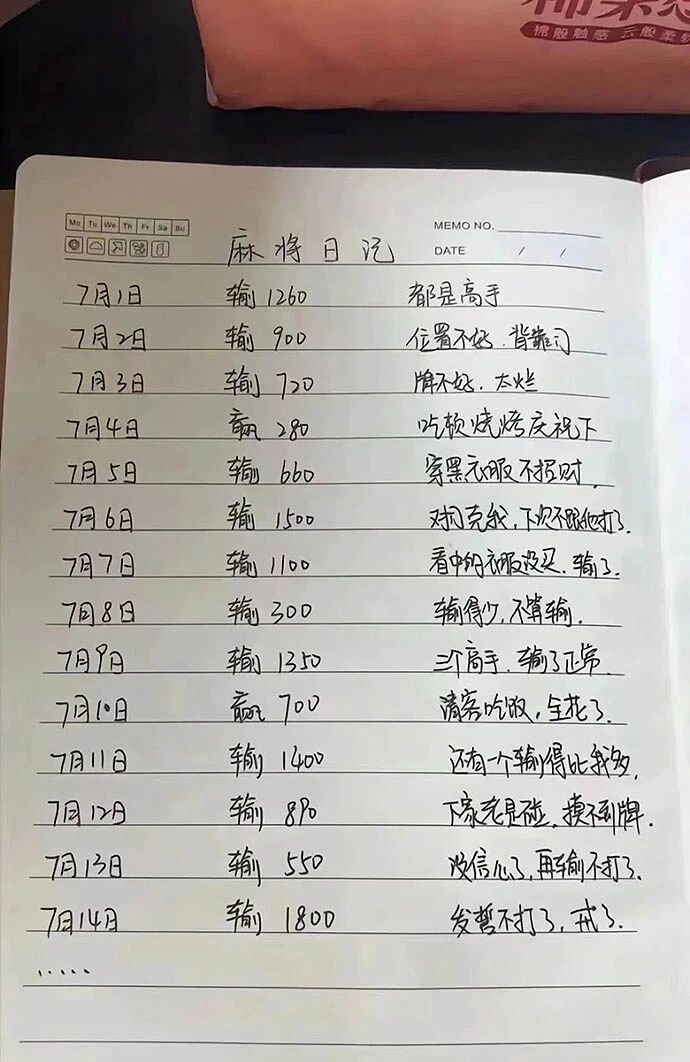 棉柔
棉般触感 云般柔软
Mo Tu We Th Fr Sa Su
MEMO NO.
DATE / /
麻将日记
7月1日 输1260 都是高手
7月2日 输900 位置不好.背靠门
7月3日 输720 牌不好.太烂
7月4日 赢280 吃顿烧烤庆祝下
7月5日 输660 穿黑衣服不招财.
7月6日 输1500 对门克我,下次不跟他打了.
7月7日 输1100 看中的衣服没买.输了.
7月8日 输300 输得少,不算输.
7月9日 输1350 三个高手.输了正常.
7月10日 赢700 请客吃饭,全花了.
7月11日 输1400 还有一个输得比我多.
7月12日 输890 下家老是碰.摸不到牌.
7月13日 输550 没信心了,再输不打了.
7月14日 输1800 发誓不打了,戒了.
.....